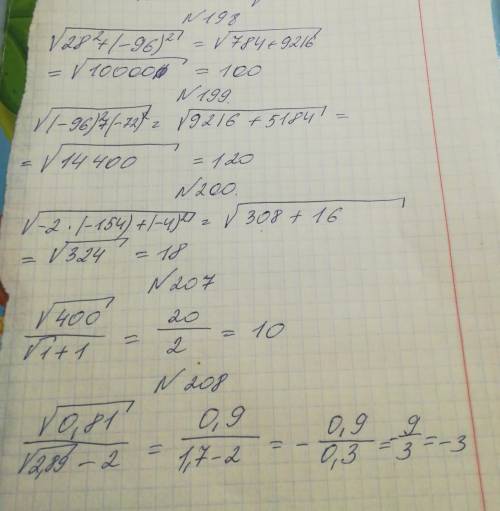 N198
√28²+(-96)² = √784+9216
= √10000 = 100
N199.
√(-96)²+(-72)² = √9216 + 5184 =
= √14 400 = 120
N200.
√-2 · (-154)+(-4)² = √308 + 16
= √324 = 18
N207
√400 / √1+1 = 20/2 = 10
N208
√0,81 / √2,89 - 2 = 0,9 / 1,7-2 = - 0,9/0,3 = 9/3 = -3